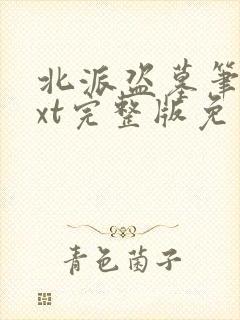 北派盗墓笔
xt完整版免
青色茵子